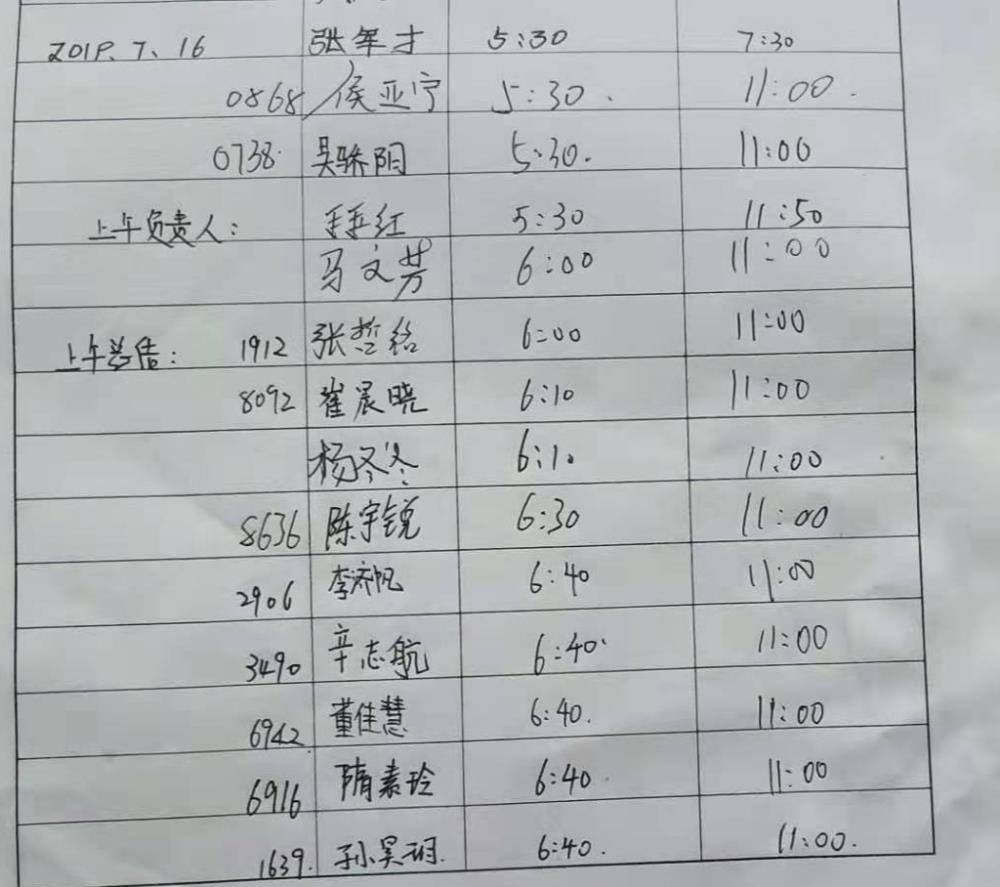 2018.7.16 张军才 5:30 7:30
0868 侯亚宁 5:30. 11:00.
0738. 吴骄阳 5:30. 11:00
上午负责人: 红 5:30 11:50
马文芳 6:00 11:00
上午总结: 1912 张哲铭 6:00 11:00
8092 崔晨晓 6:10 11:00
杨冬冬 6:10 11:00
8636 陈宇锐 6:30 11:00
2906 李济帆 6:40 11:00
3490 辛志航 6:40. 11:00
6942 董佳慧 6:40. 11:00
6916 隋素玲 6:40. 11:00
1639. 孙昊玥. 6:40. 11:00.